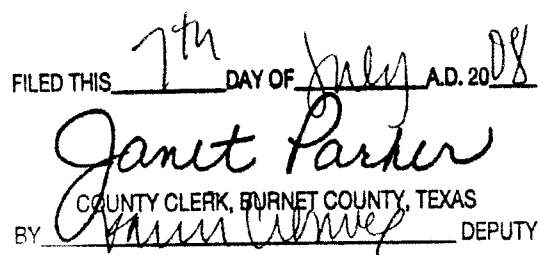 FILED THIS 7th DAY OF July A.D. 2008
Janet Parker
COUNTY CLERK, BURNET COUNTY, TEXAS
BY DEPUTY